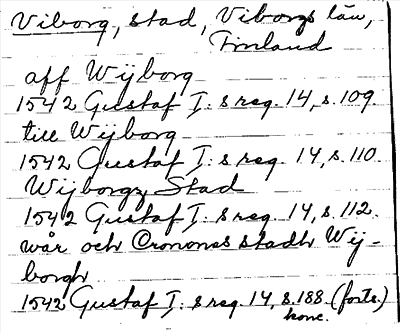 Viborg, stad, Viborgs län,
Finland
aff Wijborg
1542 Gustaf I: s reg. 14, s. 109.
till Wijborg
1542 Gustaf I: s reg. 14, s. 110.
Wijborgz Stad
1542 Gustaf I: s reg. 14, s. 112.
wår och Crononas stadh Wij-
borgh
1542 Gustaf I: s reg. 14, s. 188. (forts.)
konc.